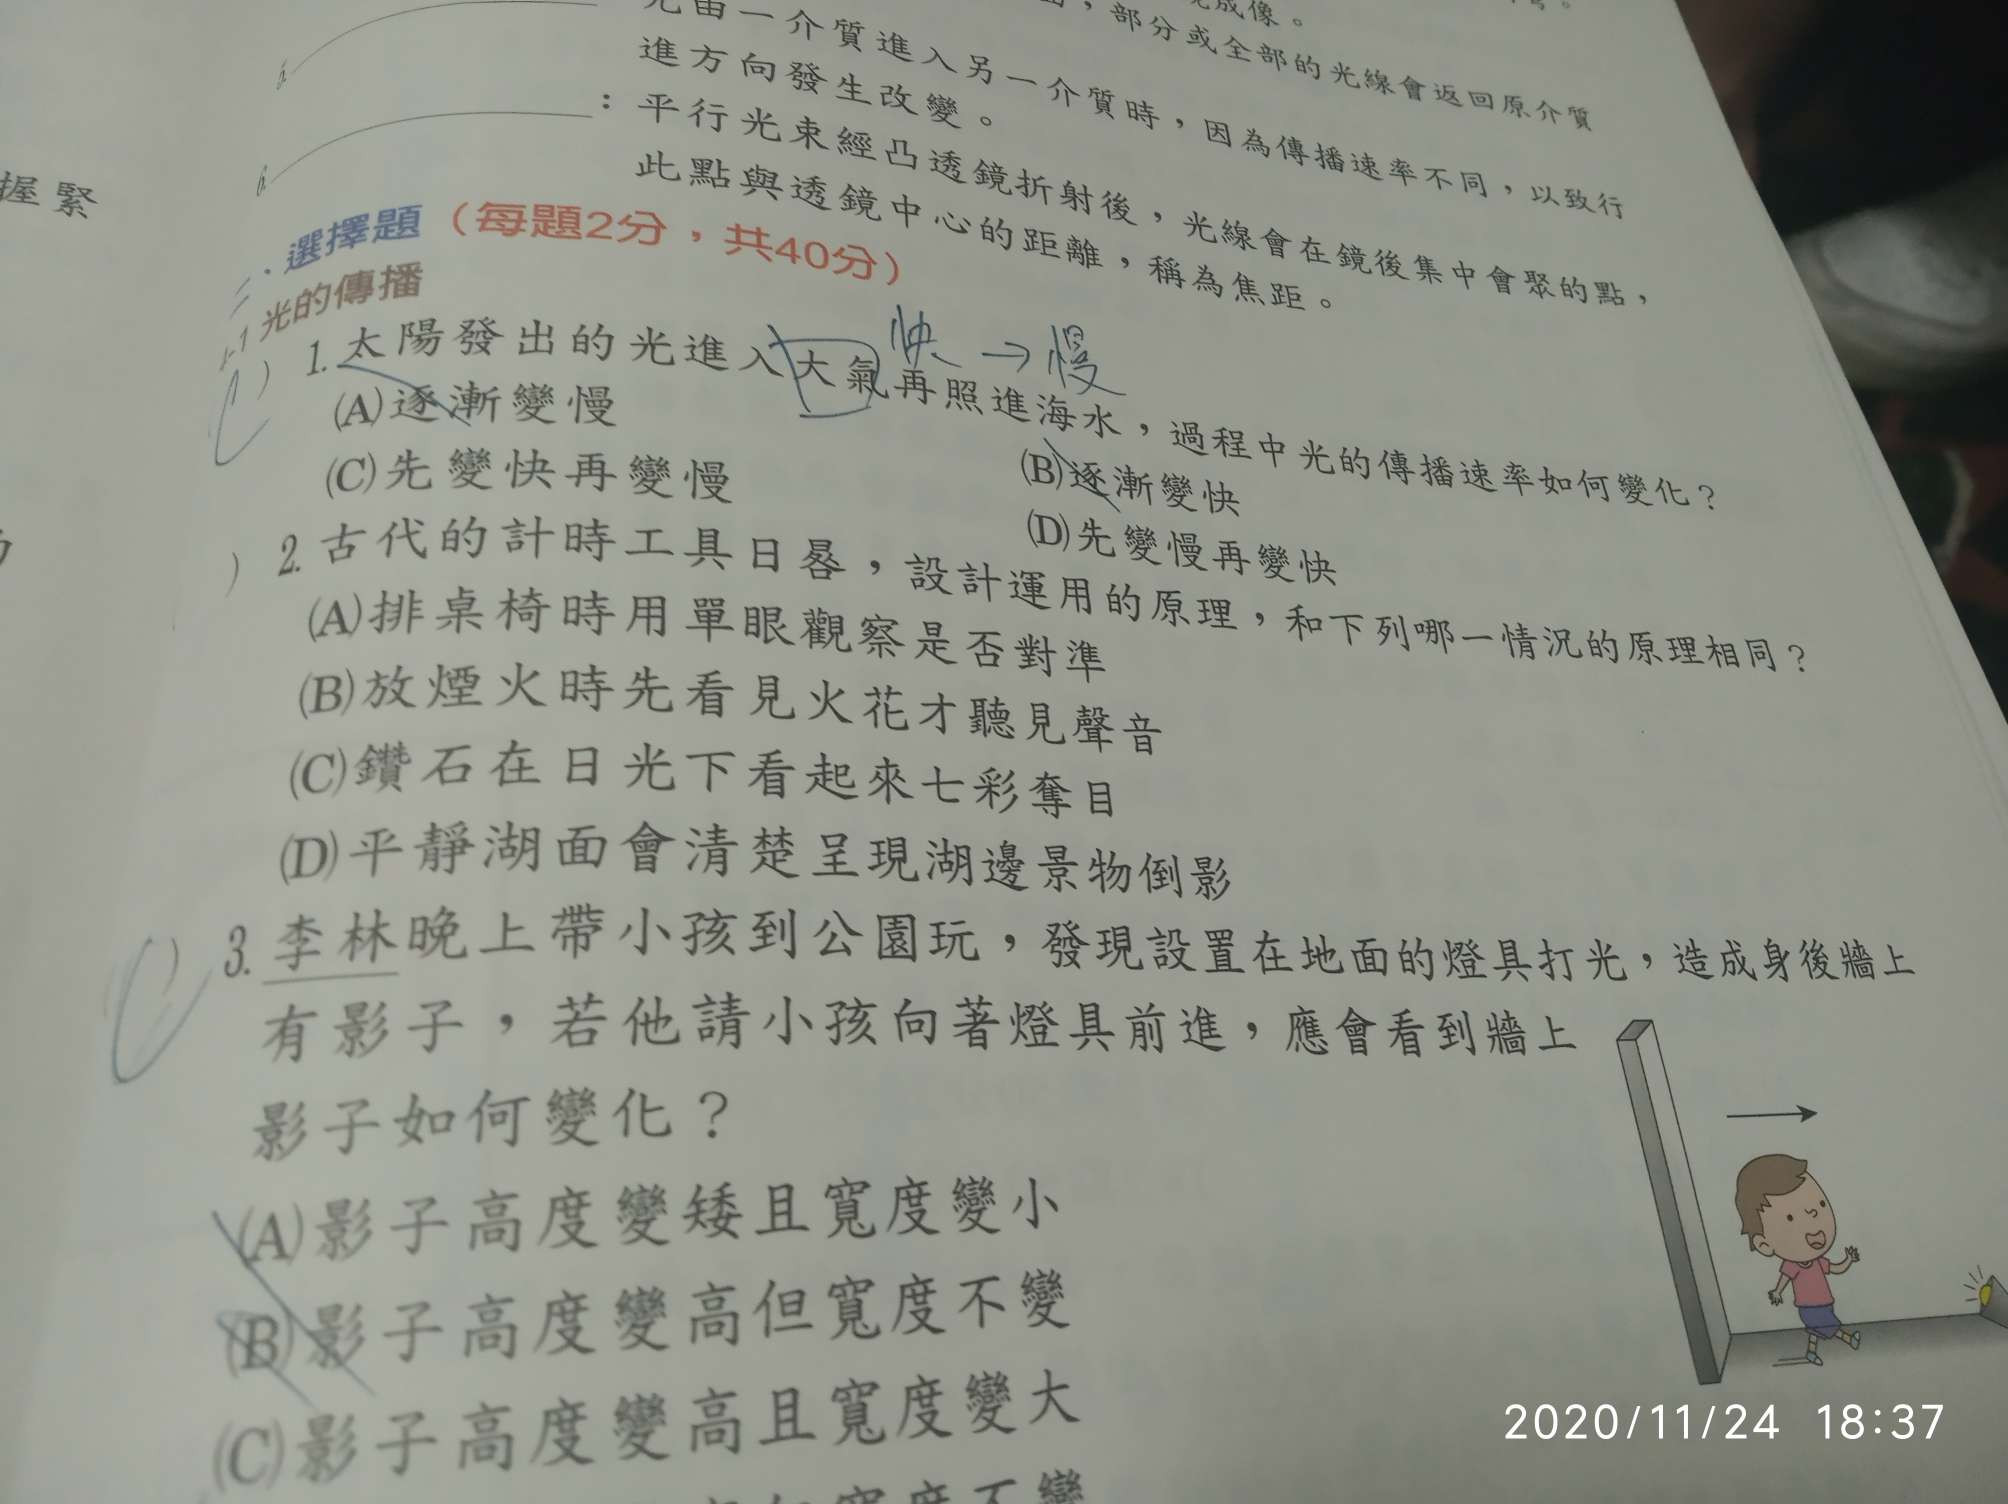 成像。
，部分或全部的光線會返回原介質
光由一介質進入另一介質時，因為傳播速率不同，以致行
進方向發生改變。
：平行光束經凸透鏡折射後，光線會在鏡後集中會聚的點，
此點與透鏡中心的距離，稱為焦距。
握緊
二、選擇題（每題2分，共40分）
光的傳播
快→慢
1. 太陽發出的光進入大氣再照進海水，過程中光的傳播速率如何變化？
(A)逐漸變慢
(B)逐漸變快
(C)先變快再變慢
(D)先變慢再變快
) 2. 古代的計時工具日晷，設計運用的原理，和下列哪一情況的原理相同？
(A)排桌椅時用單眼觀察是否對準
(B)放煙火時先看見火花才聽見聲音
(C)鑽石在日光下看起來七彩奪目
(D)平靜湖面會清楚呈現湖邊景物倒影
) 3. 李林晚上帶小孩到公園玩，發現設置在地面的燈具打光，造成身後牆上
有影子，若他請小孩向著燈具前進，應會看到牆上
影子如何變化？
(A)影子高度變矮且寬度變小
(B)影子高度變高但寬度不變
(C)影子高度變高且寬度變大
寬度不變
2020/11/24 18:37